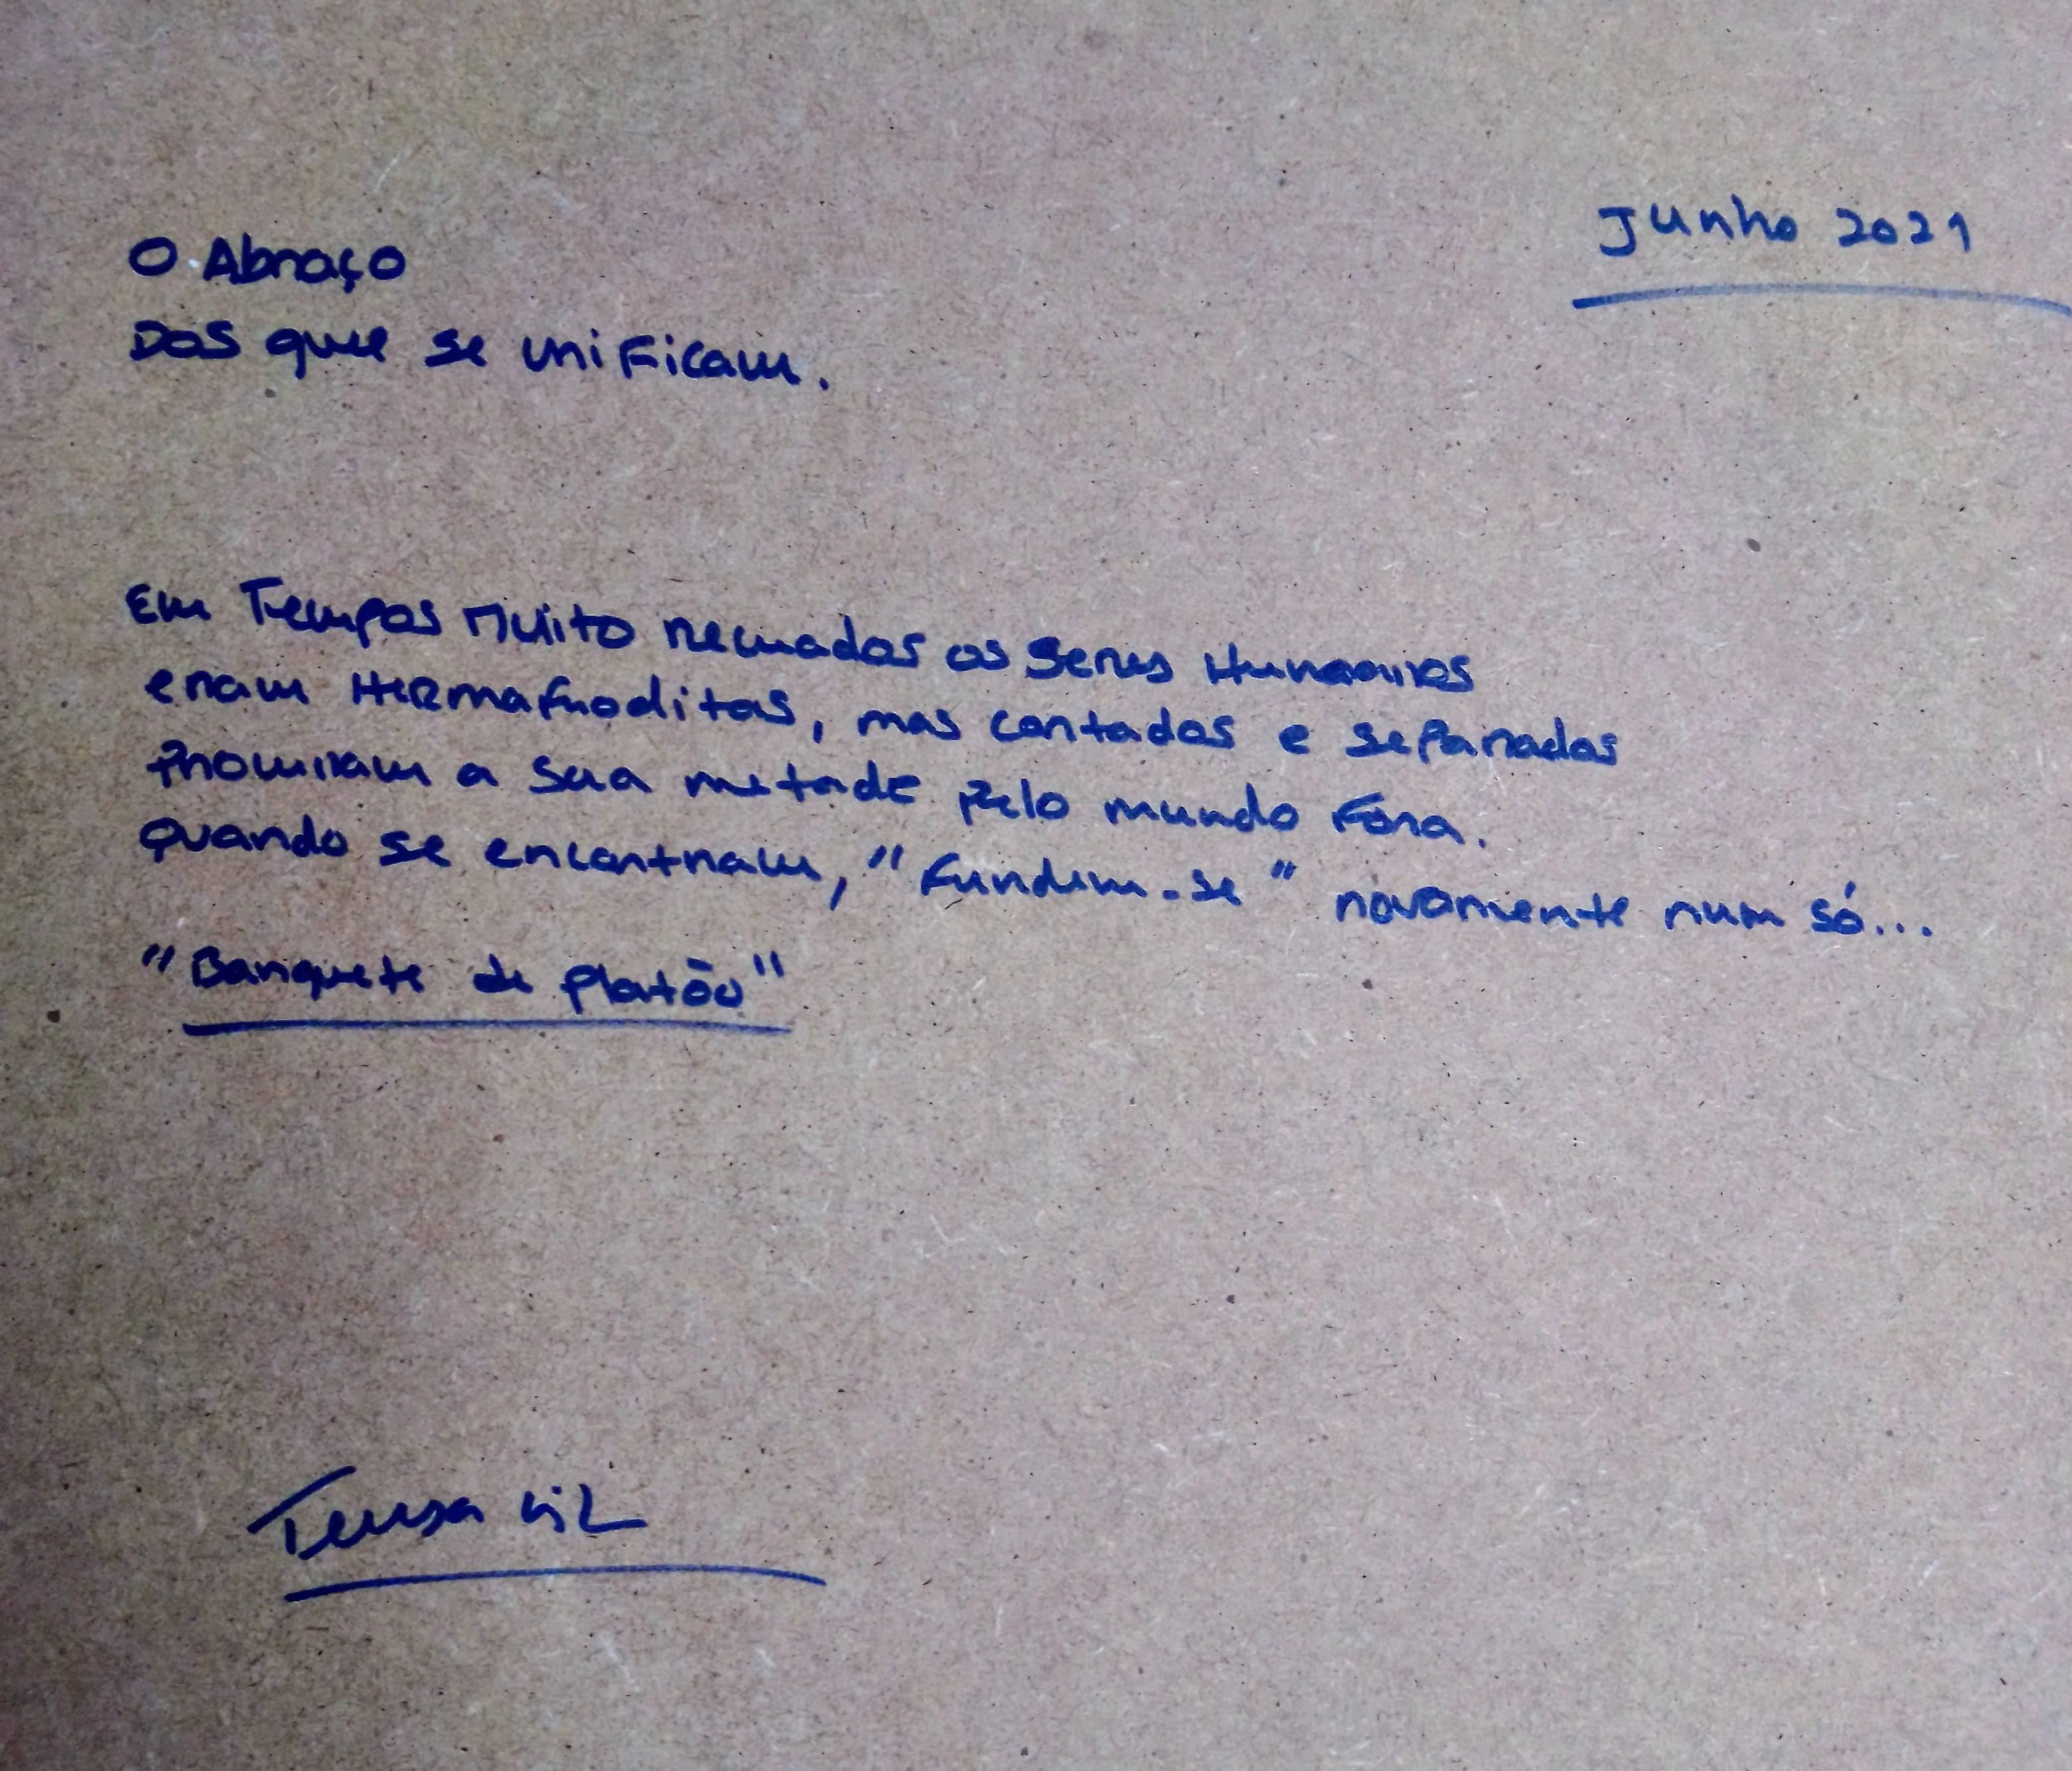 O Abraço
Dos que se unificam.
Junho 2021
Em Tempos Muito recuados os seres Humanos
eram Hermafroditas, mas cortados e separados
procuram a sua metade pelo mundo fora.
quando se encontram, "fundem-se" novamente num só...
"Banquete de Platão"
Teresa Gil